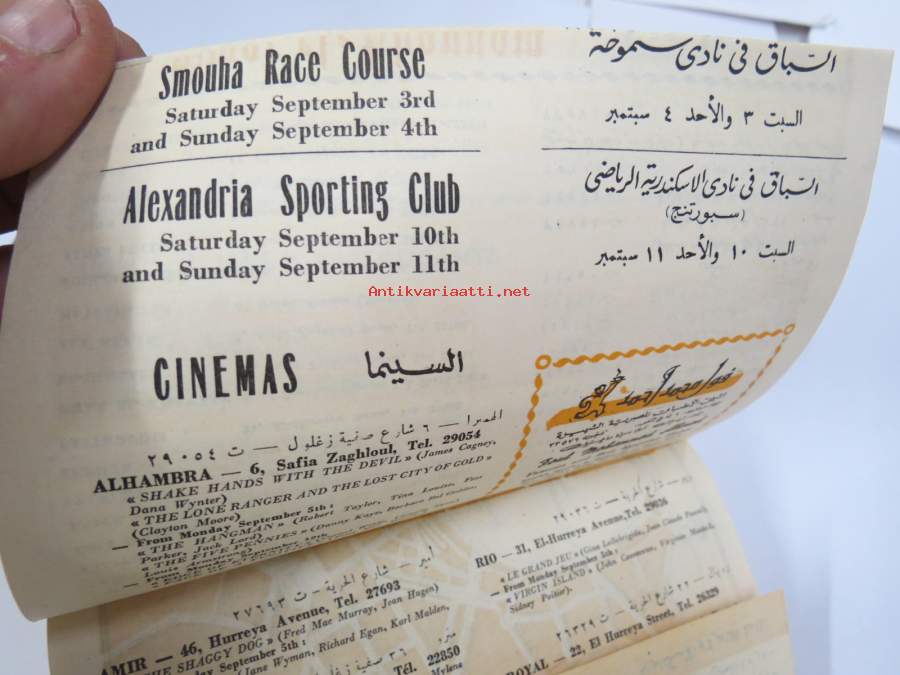 Smouha Race Course
Saturday September 3rd
and Sunday September 4th
السباق في نادي سموحة
السبت ٣ والأحد ٤ سبتمبر
Alexandria Sporting Club
Saturday September 10th
and Sunday September 11th
السباق في نادي الاسكندرية الرياضي
(سبورتنج)
السبت ١٠ والأحد ١١ سبتمبر
Antikvariaatti.net
CINEMAS السينما
الحمرا — ٦ شارع صفية زغلول — ت ٢٩٠٥٤
ALHAMBRA — 6, Safia Zaghloul, Tel. 29054
« SHAKE HANDS WITH THE DEVIL » (James Cagney,
Dana Wynter)
« THE LONE RANGER AND THE LOST CITY OF GOLD »
(Clayton Moore)
— From Monday September 5th :
« THE HANGMAN » (Robert Taylor, Tina Louise, Fess
Parker, Jack Lord)
« THE FIVE PENNIES » (Danny Kaye, Barbara Bel Geddes,
Louis Armstrong)
— From Monday
شارع الحرية — ت ٢٩٠٣٦
RIO — 31, El-Hurreya Avenue, Tel. 29036
« LE GRAND JEU » (Gina Lollobrigida, Jean Claude Pascal)
— From Monday September 5th :
« VIRGIN ISLAND » (John Cassavetes, Virginia
Sidney Poitier).
امير — شارع الحرية — ت ٢٧٦٩٣
AMIR — 46, Hurreya Avenue, Tel. 27693
THE SHAGGY DOG » (Fred Mac Murray, Jean Hagen)
September 5th :
(Jane Wyman, Richard Egan, Karl Malden,
٣٦ صفية زغلول
Tel. 22850
Mylene
ت ٢٦٣٢٩
ROYAL — 22, El Hurreya Street, Tel. 26329